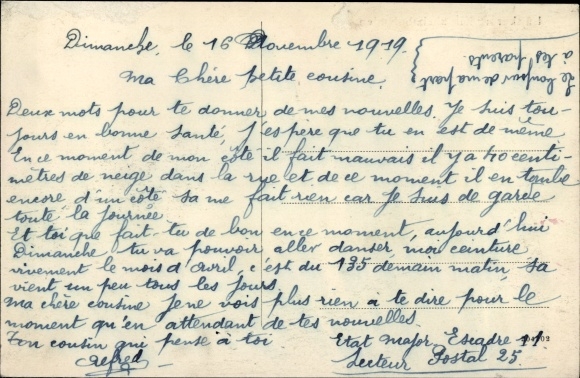 Dimanche, le 16 Novembre 1919.
Le bonjour de ma part
à tes parents.
Ma Chère petite cousine.
Deux mots pour te donner de mes nouvelles. Je suis tou-
jours en bonne santé, J'espère que tu en est de même
En ce moment de mon côté il fait mauvais il y a 40 centi-
mètres de neige dans la rue et de ce moment il en tombe
encore d'un côté sa me fait rien car je suis de garde
toute la journée
Et toi que fait-tu de bon en ce moment, aujourd'hui
Dimanche tu va pouvoir aller danser moi ceinture
vivement le mois d'Avril, c'est du 135 demain matin, sa
vient un peu tous les jours.
Ma chère cousine je ne vois plus rien a te dire pour le
moment qu'en attendant de tes nouvelles.
Ton cousin qui pense à toi
Alfred
Etat Major, Escadre
Secteur Postal 25.